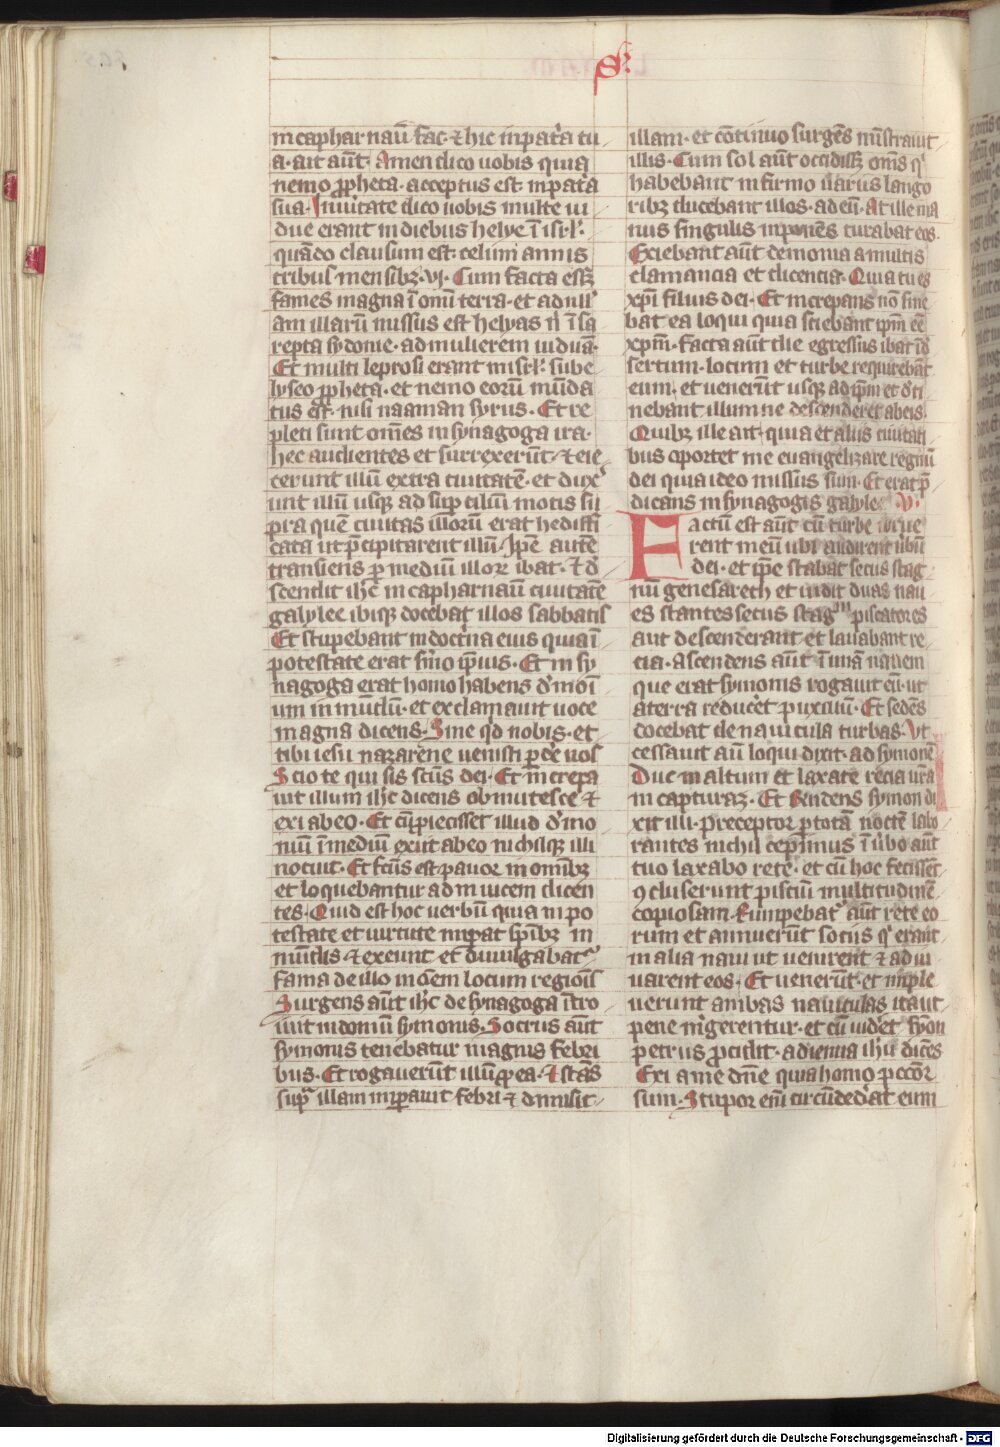 S͛
in caphar naū fac· ⁊ hic in pat͛a tu
a· ait aūt· Amen dico uobis quia
nemo ꝓpheta· acceptus est in pat͛a
sua· In u͛itate dico uobis multe ui
due erant in diebus helye ī isr̄l·
quādo clausum est celum annis
tribus mensibꝫ· vj· Cum facta essꝫ
fames magna ī om̄i terra· et ad null
am illarū missus est helyas n̄ ī sa
repta sydonie· ad mulierem uiduā·
Et multi leprosi erant in isr̄l· sub e
lyseo ꝓpheta· et nemo eorū mūda
tus est· nisi naaman syrus· Et re
pleti sunt om̄es in synagoga ira·
hec audientes et surrexerūt· ⁊ eie
cerunt illū extra ciuitatē· et dux͛
unt illū usqꝫ ad sup͛cilium mōtis su
pra quē ciuitas illorū erat hediffi
cata ut p̄cipitarent illū· Ip̄e autē
transiens ꝑ mediū illoꝝ ibat· ⁊ d̄
scendit ih̄c in capharnaū ciuitatē
galylee ibiqꝫ docebat illos sabbatis
Et stupebant in doct͛na eius quia ī
potestate erat s͛mo ip̄ius· Et in sy
nagoga erat homo habens d͛moī
um in mūdū· et exclamauit uoce
magna dicens· Sine q͛d nobis· et
tibi iesu nazarene uenisti ꝑd͛e nos
Scio te qui sis sc̄us dei· Et īncrepa
uit illum ih̄c dicens obmutesce ⁊
exi ab eo· Et cū ꝓiecisset illud d͛mo
niū ī mediū exiit ab eo nichilqꝫ illi
nocuit· Et fc̄us est pauor in omībꝫ
et loquebantur ad in uicem dicen
tes· Quid est hoc uerbū quia in po
testate et uirtute imꝑat sp̄ibꝫ in
mūdis ⁊ exeunt· et diuulgabat͛
fama de illo in ōem locum regiōis
Surgens aūt ih̄c de synagoga ītro
iuit in domū symonis· Socrus aūt
symonis tenebatur magnis febri
bus· Et rogauerūt illū ꝓ ea· ⁊ stās
sup͛ illam imꝑauit febri ⁊ dimisit
illam· et cōtinuo surgēs mīstrauit
illis· Cum sol aūt occidissꝫ om̄s q͛
habebant infirmos uariis lango
ribꝫ ducebant illos· ad eū· At ille ma
nus singulis inponēs curabat eos·
Exiebant aūt demonia a multis
clamancia et dicentia· Quia tu es
xp̄i filius dei· Et increpans nō sine
bat ea loqui quia sciebant ip̄m eē
xp̄m· Facta aūt die egressus ibat ī d͛
sertum· locum et turbe requirebāt
eum· et uenerūt usqꝫ ad ip̄m et d͛ti
nebant illum ne descenderet ab eis·
Quibꝫ ille ait· quia et aliis ciuitati
bus oportet me euangelizare regnū
dei quia ideo missus sum· Et erat p̄
dicans in synagogis galylee· V·
Factū est aūt cū turbe irrue
rent in eū ubi audirent ūbū
dei· et ip̄e stabat secus stag
nū genesareth et uidit duas naui
es stantes secus stagnū piscatores
aut descenderant et lauabant re
cia· Ascendens aūt ī unā nauem
que erat symonis rogauit eū· ut
a terra reduc͛et puxillū· Et sedēs
docebat de nauicula turbas· Vt
cessauit aū loqui dixit· ad symonē
Duc in altum et laxate recia ur̄a
in capturaꝫ· Et respondens symon di
xit illi· preceptor ꝑ totā noctē labo
rantes nichil cepimus ī ūbo aūt
tuo laxabo rete· et cū hoc fecissēt
ꝯcluserunt pisciū multitudinē
copiosam· Rumpebat͛ aūt rete eo
rum et annuerūt sociis q͛ erant
in alia naui ut uenirent ⁊ adiu
uarent eos· Et uenerūt· et imple
uerunt ambas nauiculas ita ut
pene m͛gerentur· et cū uid͛et symon
petrus ꝓcidit· ad ienua ih̄u dicēs
Exi a me dn̄e quia homo pccōr
sum· Stupor em̄ circūded͛at eum
Digitalisierung gefördert durch die Deutsche Forschungsgemeinschaft - DFG